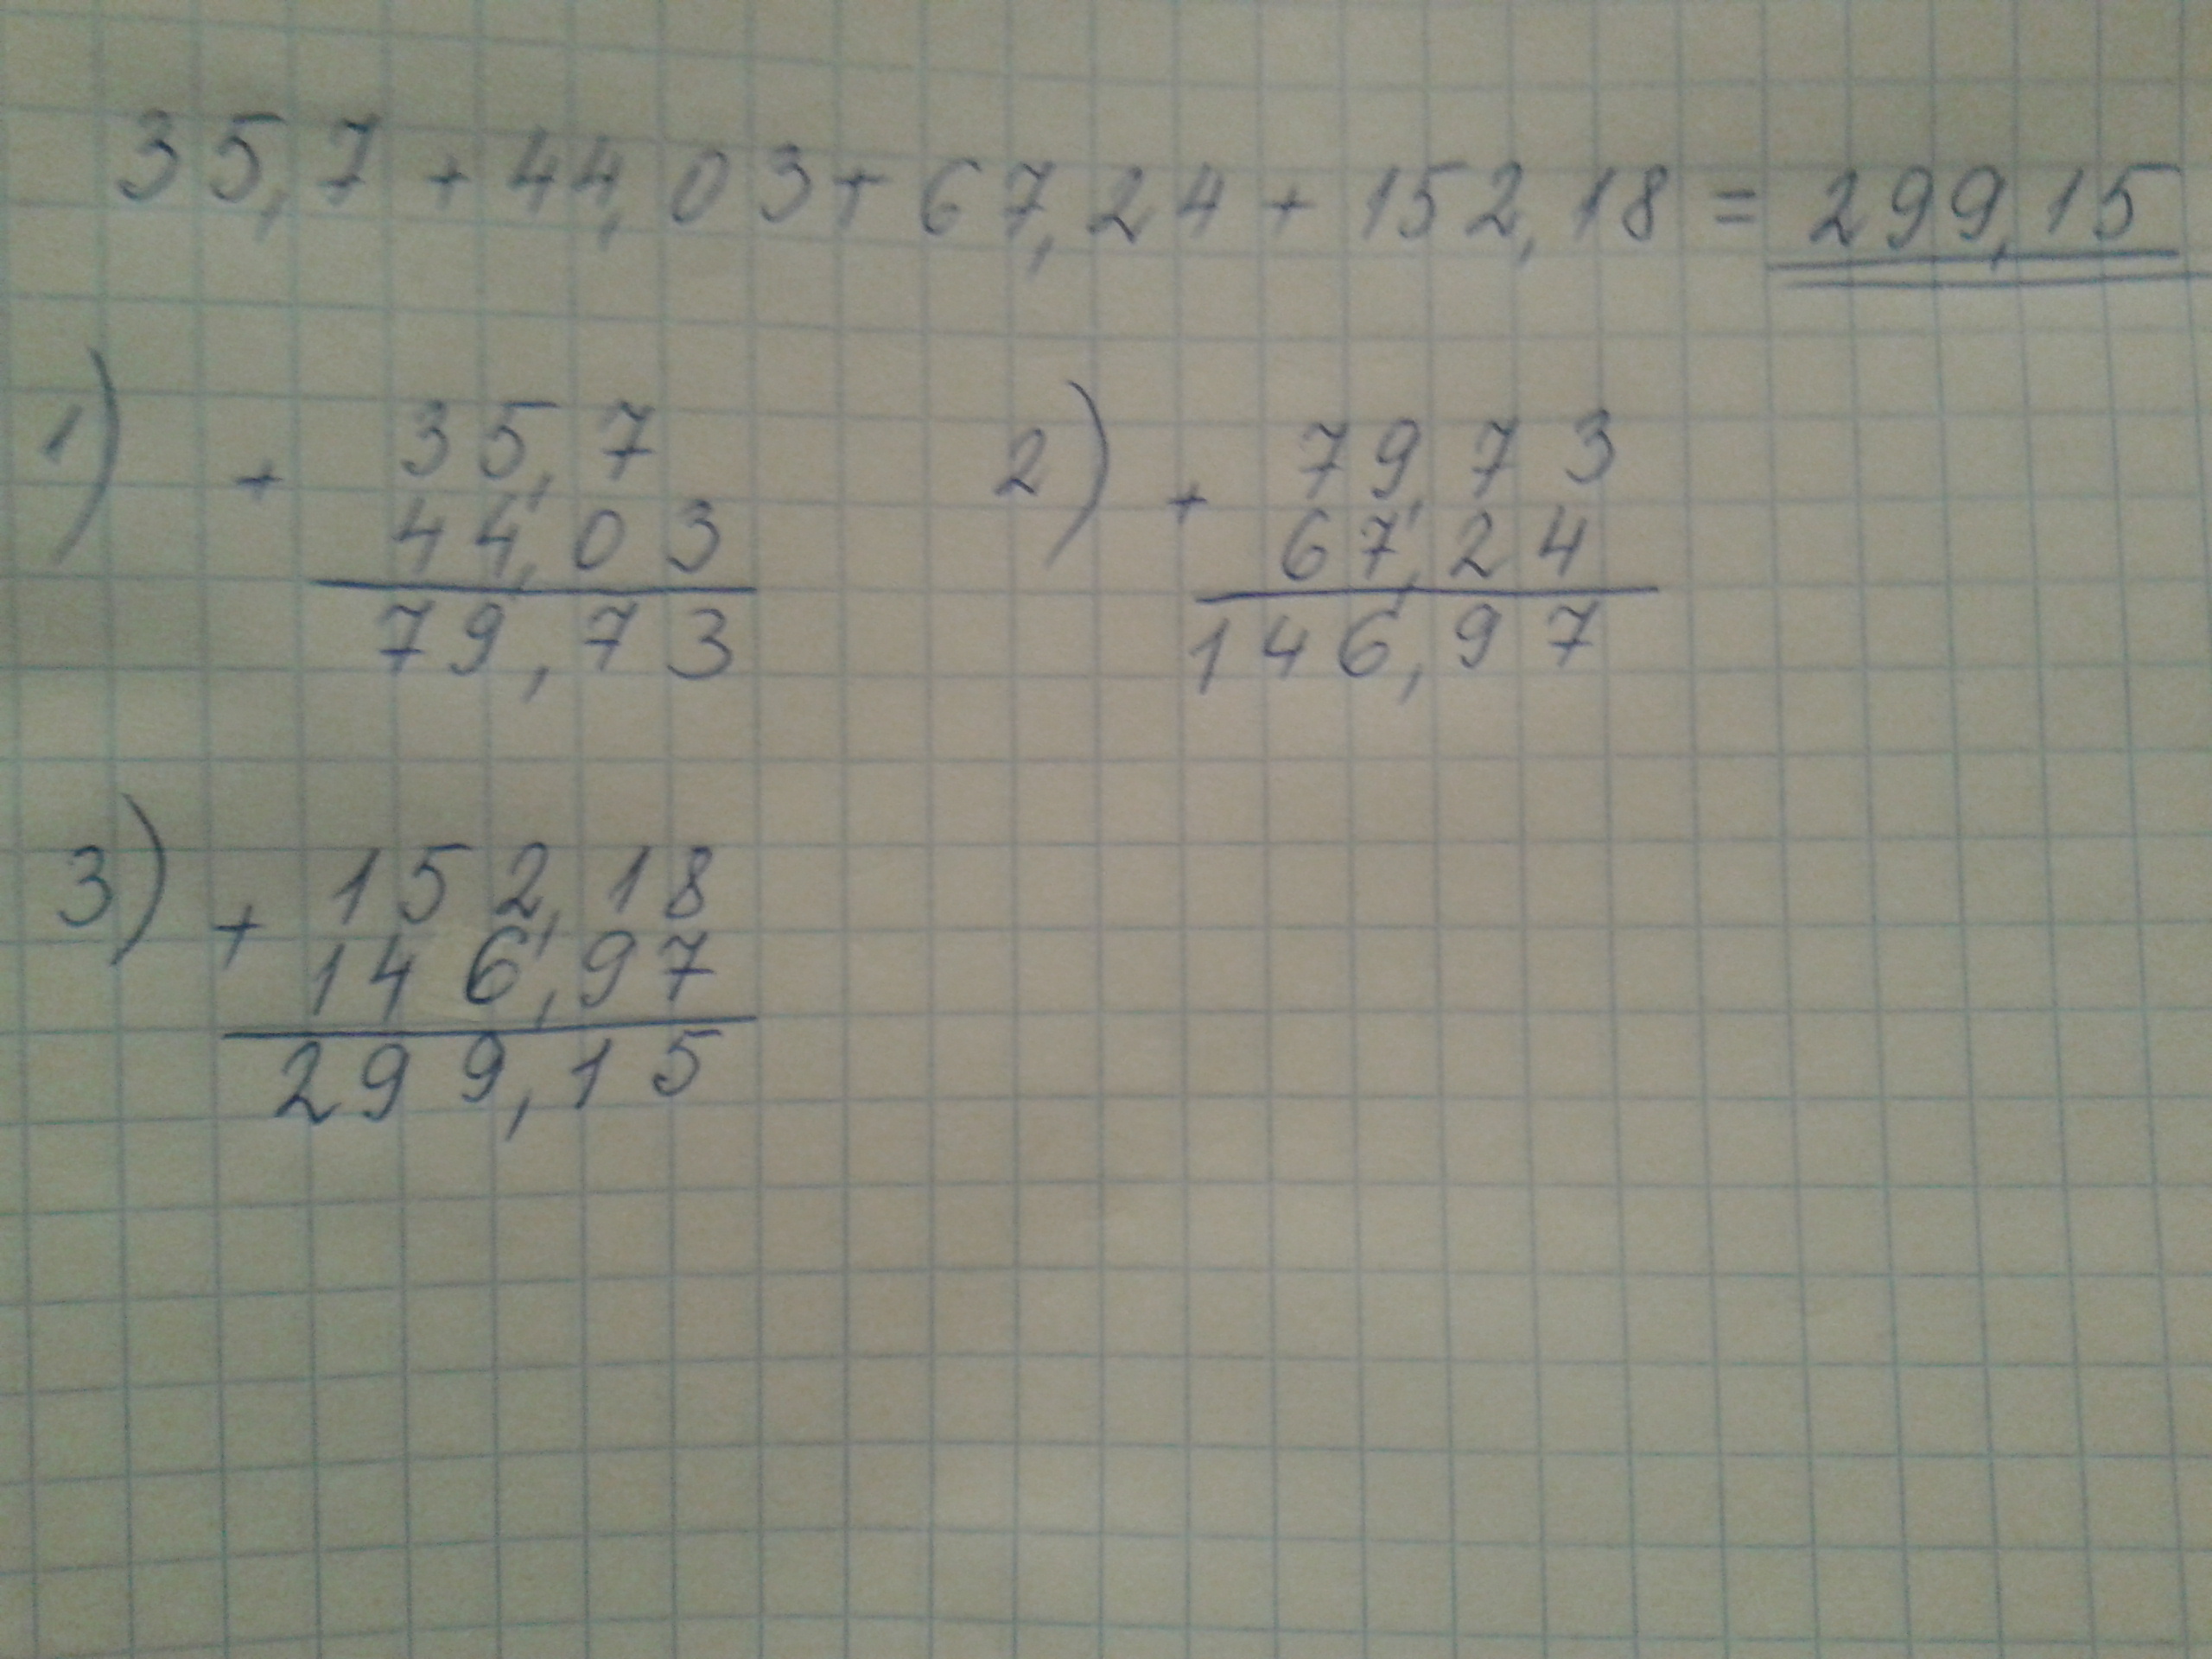 35,7 + 44,03 + 67,24 + 152,18 = 299,15
1) + 35,7
44,03
79,73
2) + 79,73
67,24
146,97
3) + 152,18
146,97
299,15